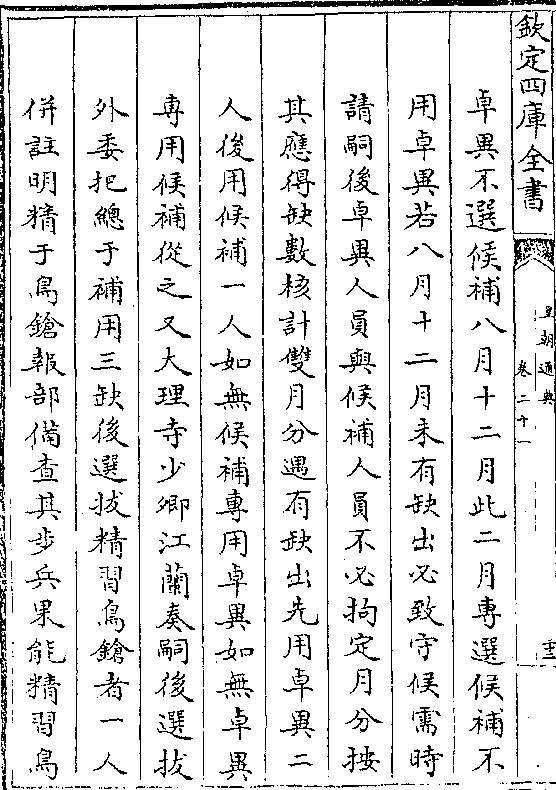 欽定四庫全書
皇朝通典
卷二十一
卓異不選候補八月十二月此二月專選候補不
用卓異若八月十二月未有缺出必致守候需時
請嗣後卓異人員與候補人員不必拘定月分按
其應得缺數核計雙月分遇有缺出先用卓異二
人後用候補一人如無候補專用卓異如無卓異
專用候補從之又大理寺少卿江蘭奏嗣後選拔
外委把總于補用三缺後選拔精習鳥鎗者一人
併註明精于鳥鎗報部備查其步兵果能精習鳥